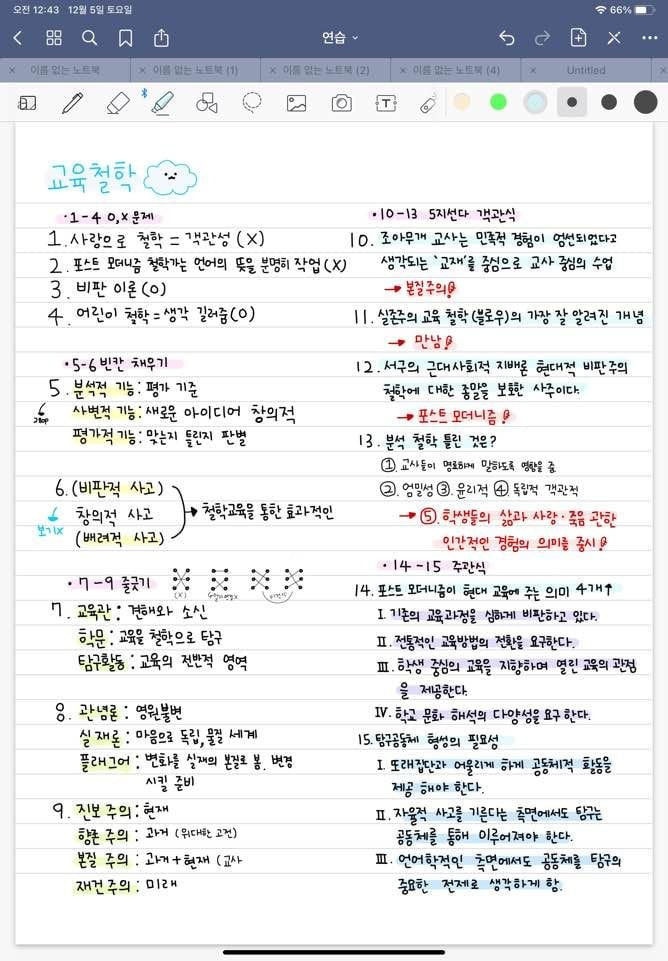 오전 12:43 12월 5일 토요일
66%
연습
이름 없는 노트북
이름 없는 노트북 (1)
이름 없는 노트북 (2)
이름 없는 노트북 (4)
Untitled
교육철학
•1-4 O,X 문제
1. 사랑으로 철학 = 객관성 (X)
2. 포스트 모더니즘 철학가는 언어의 뜻을 분명히 작업 (X)
3. 비판 이론 (O)
4. 어린이 철학 = 생각 길러줌 (O)
•5-6 빈칸 채우기
5. 분석적 기능 : 평가 기준
사변적 기능 : 새로운 아이디어 창의적
평가적 기능 : 맞는지 틀린지 판별
6. (비판적 사고)
창의적 사고 → 철학교육을 통한 효과적인
보기X
(배려적 사고)
•7-9 줄긋기
(X)
7. 교육관 : 견해와 소신
학문 : 교육을 철학으로 탐구
탐구활동 : 교육의 전반적 영역
8. 관념론 : 영원불변
실재론 : 마음으로 독립, 물질 세계
플래그어 : 변화를 실재의 본질로 봄. 변경
시킬 준비
9. 진보 주의 : 현재
항존 주의 : 과거 (위대한 고전)
본질 주의 : 과거 + 현재 (교사
재건 주의 : 미래
•10-13 5지선다 객관식
10. 조아무개 교사는 민족적 경험이 엄선되었다고
생각되는 '교재'를 중심으로 교사 중심의 수업
→ 본질주의!
11. 실존주의 교육 철학(볼로우)의 가장 잘 알려진 개념
→ 만남!
12. 서구의 근대사회적 지배론 현대적 비판주의
철학에 대한 종말을 보호한 사주이다.
→ 포스트 모더니즘!
13. 분석 철학 틀린 것은?
① 교사들이 명료하게 말하도록 영향을 줌
② 엄밀성 ③ 윤리적 ④ 독립적 객관적
→ ⑤ 학생들의 삶과 사랑·죽음 관한
인간적인 경험의 의미를 중시!
•14-15 주관식
14. 포스트 모더니즘이 현대 교육에 주는 의미 4개↑
I. 기존의 교육과정을 심하게 비판하고 있다.
II. 전통적인 교육방법의 전환을 요구한다.
III. 학생 중심의 교육을 지향하며 열린 교육의 관점
을 제공한다.
IV. 학교 문화 해석의 다양성을 요구한다.
15. 탐구공동체 형성의 필요성
I. 또래집단과 어울리게 하게 공동체적 활동을
제공 해야 한다.
II. 자율적 사고를 기른다는 측면에서도 탐구는
공동체를 통해 이루어져야 한다.
III. 언어학적인 측면에서도 공동체를 탐구의
중요한 전제로 생각하게 함.